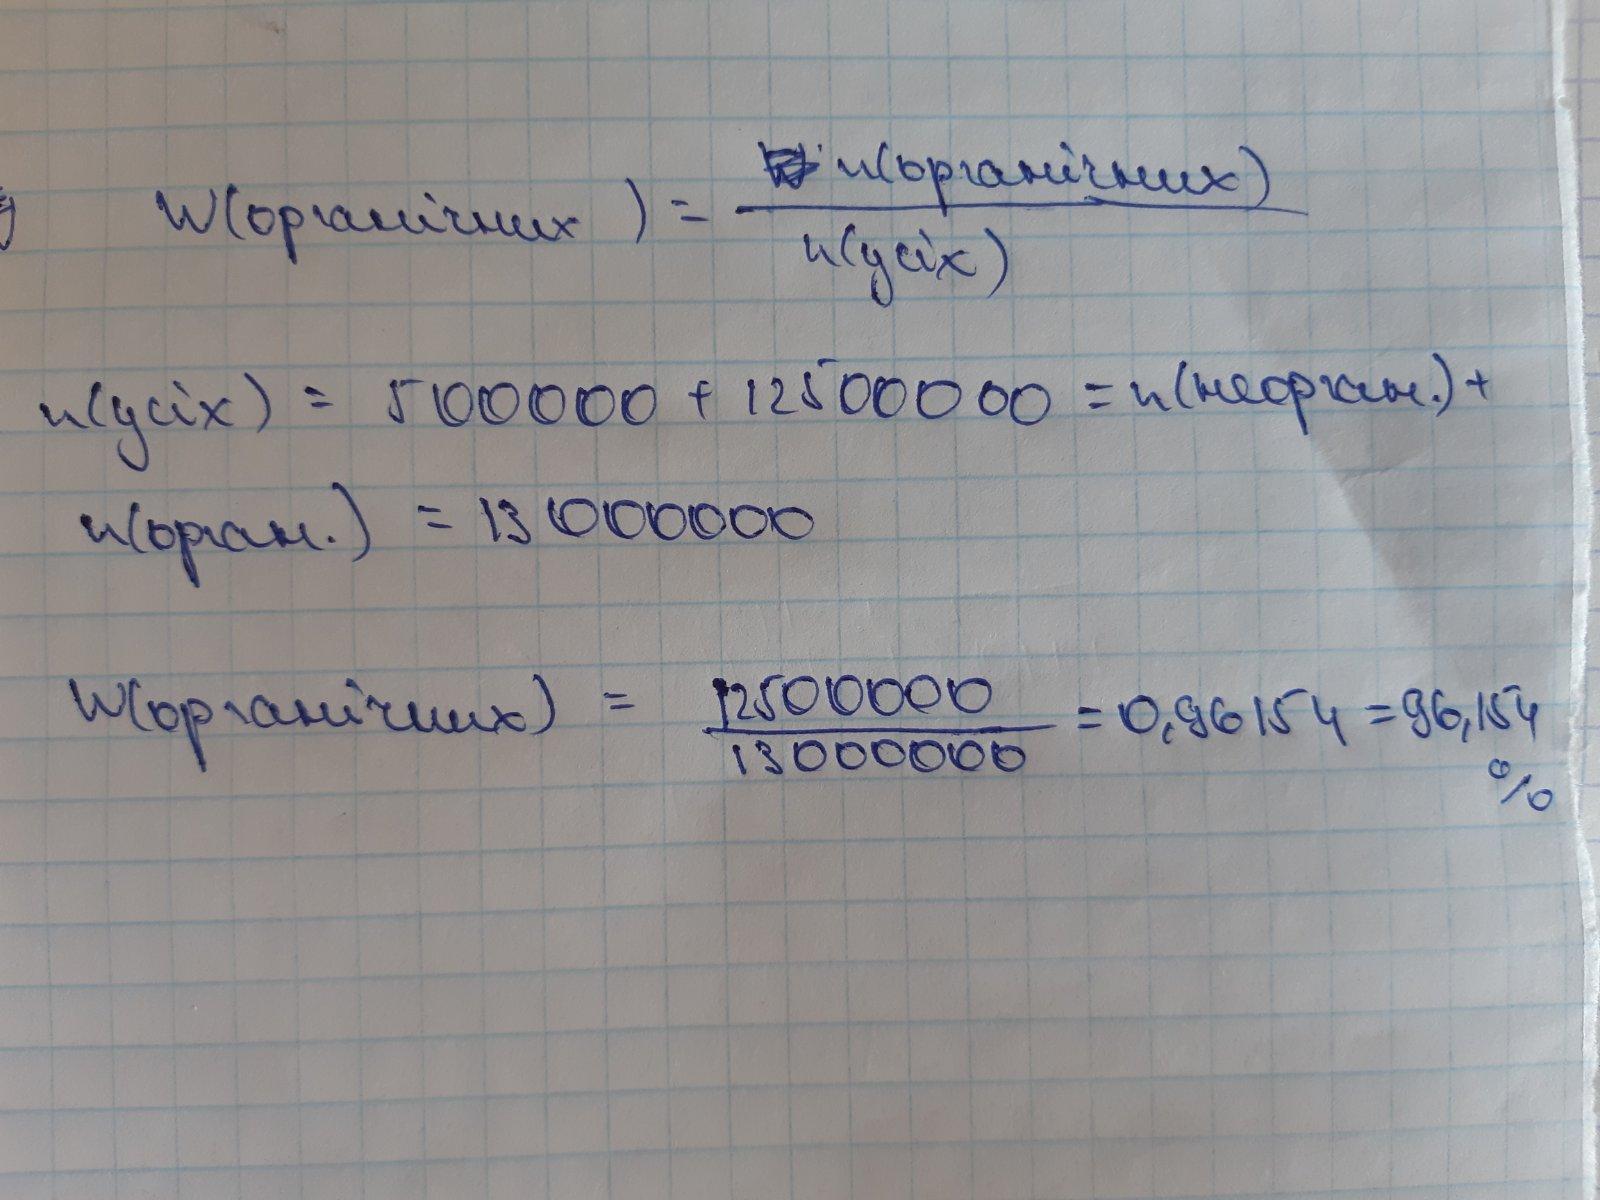 W(органічних ) = n(органічних)
n(усіх)
n(усіх) = 500000 + 12500000 = n(неорган.) +
n(орган.) = 13000000
W(органічних) = 12500000
13000000
= 0,96154 = 96,154
%